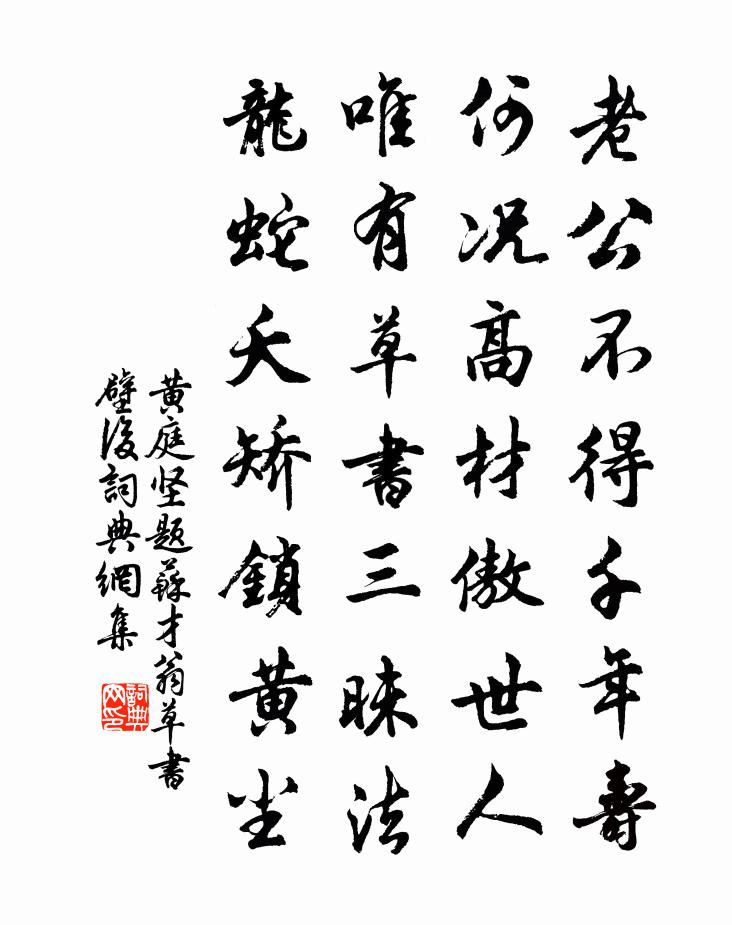 老公不得千年壽
何況高材傲世人
唯有草書三昧法
龍蛇夭矯鎖黄尘
黄庭坚题蘇才翁草書
壁後詞典網集
詞典
网印